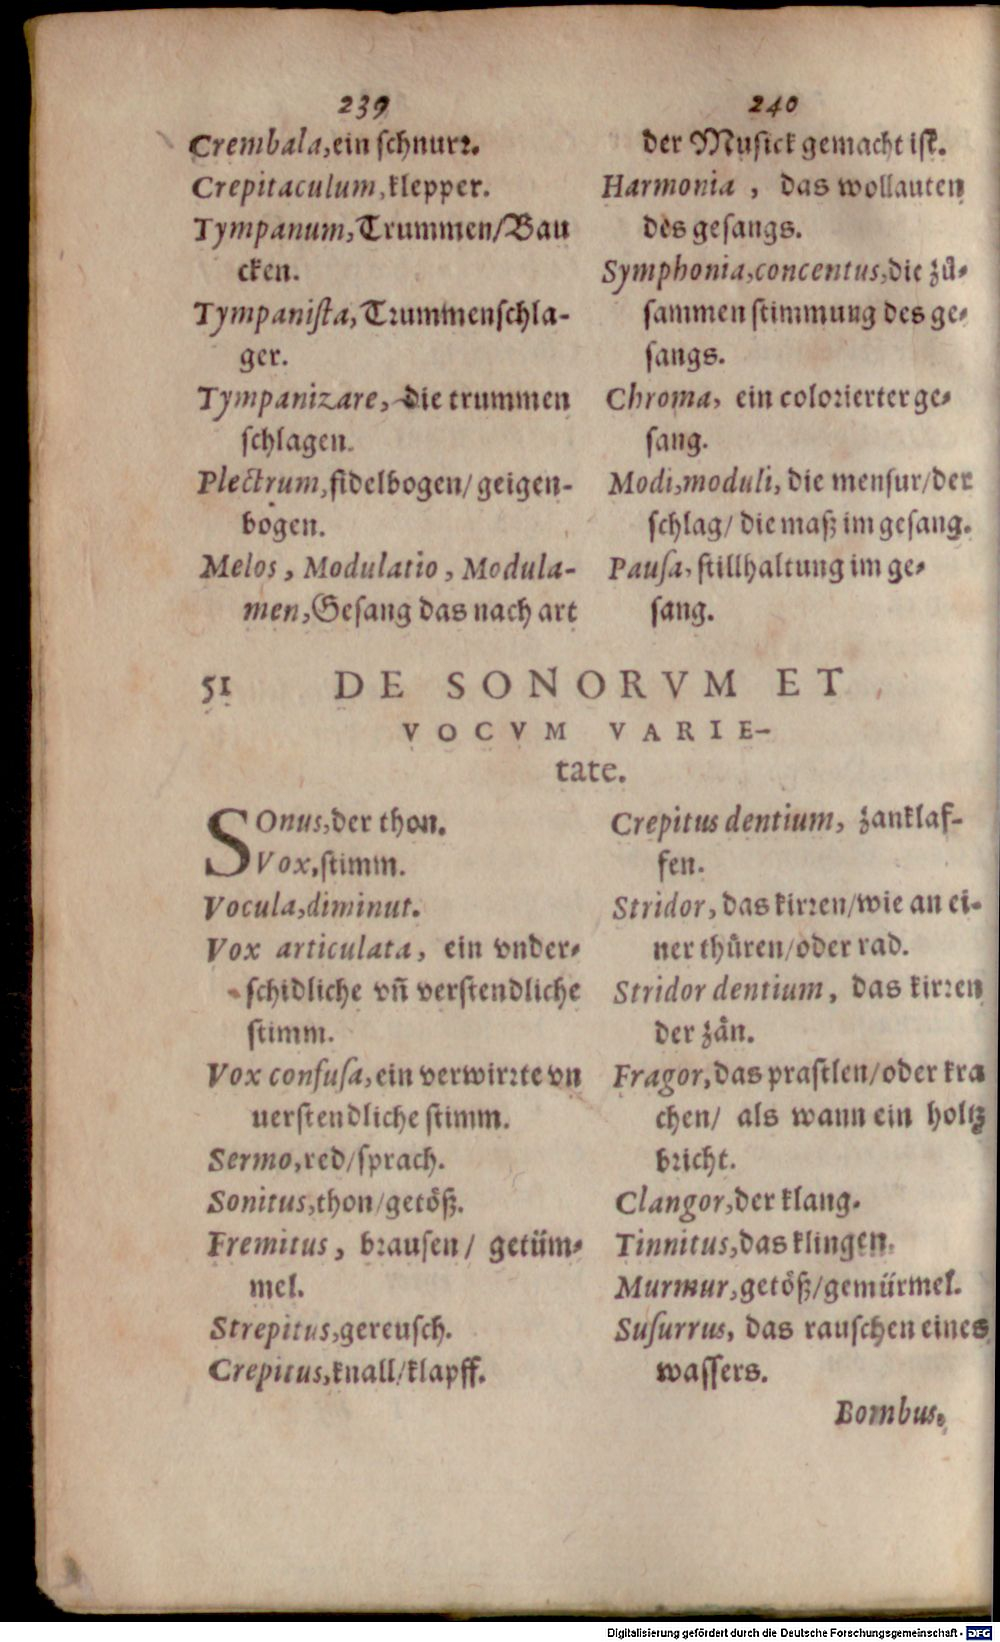 239
Crembala, ein schnurr.
Crepitaculum, klepper.
Tympanum, Trummen/Bau
cken.
Tympaniſta, Trummenſchla-
ger.
Tympanizare, die trummen
ſchlagen.
Plectrum, fidelbogen/ geigen-
bogen.
Melos, Modulatio, Modula-
men, Geſang das nach art
240
der Muſick gemacht iſt.
Harmonia, das wollauten
des geſangs.
Symphonia, concentus, die zů-
ſammenſtimmung des ge-
ſangs.
Chroma, ein colorierter ge-
ſang.
Modi, moduli, die menſur/der
ſchlag/ die maß im geſang.
Pauſa, ſtillhaltung im ge-
ſang.
51 DE SONORVM ET
VOCVM VARIE-
tate.
SOnus, der thon.
Vox, ſtimm.
Vocula, diminut.
Vox articulata, ein vnder-
ſchidliche vñ verſtendliche
ſtimm.
Vox confuſa, ein verwirrte vn
uerſtendliche ſtimm.
Sermo, red/ſprach.
Sonitus, thon/getöß.
Fremitus, brauſen/ getüm-
mel.
Strepitus, gereuſch.
Crepitus, knall/klapff.
Crepitus dentium, zanklaf-
fen.
Stridor, das kirren/wie an ei-
ner thüren/oder rad.
Stridor dentium, das kirren
der zån.
Fragor, das praſtlen/oder kra
chen/ als wann ein holtz
bricht.
Clangor, der klang.
Tinnitus, das klingen.
Murmur, getöß/gemürmel.
Suſurrus, das rauſchen eines
waſſers.
Bombus,
Digitalisierung gefördert durch die Deutsche Forschungsgemeinschaft - DFG